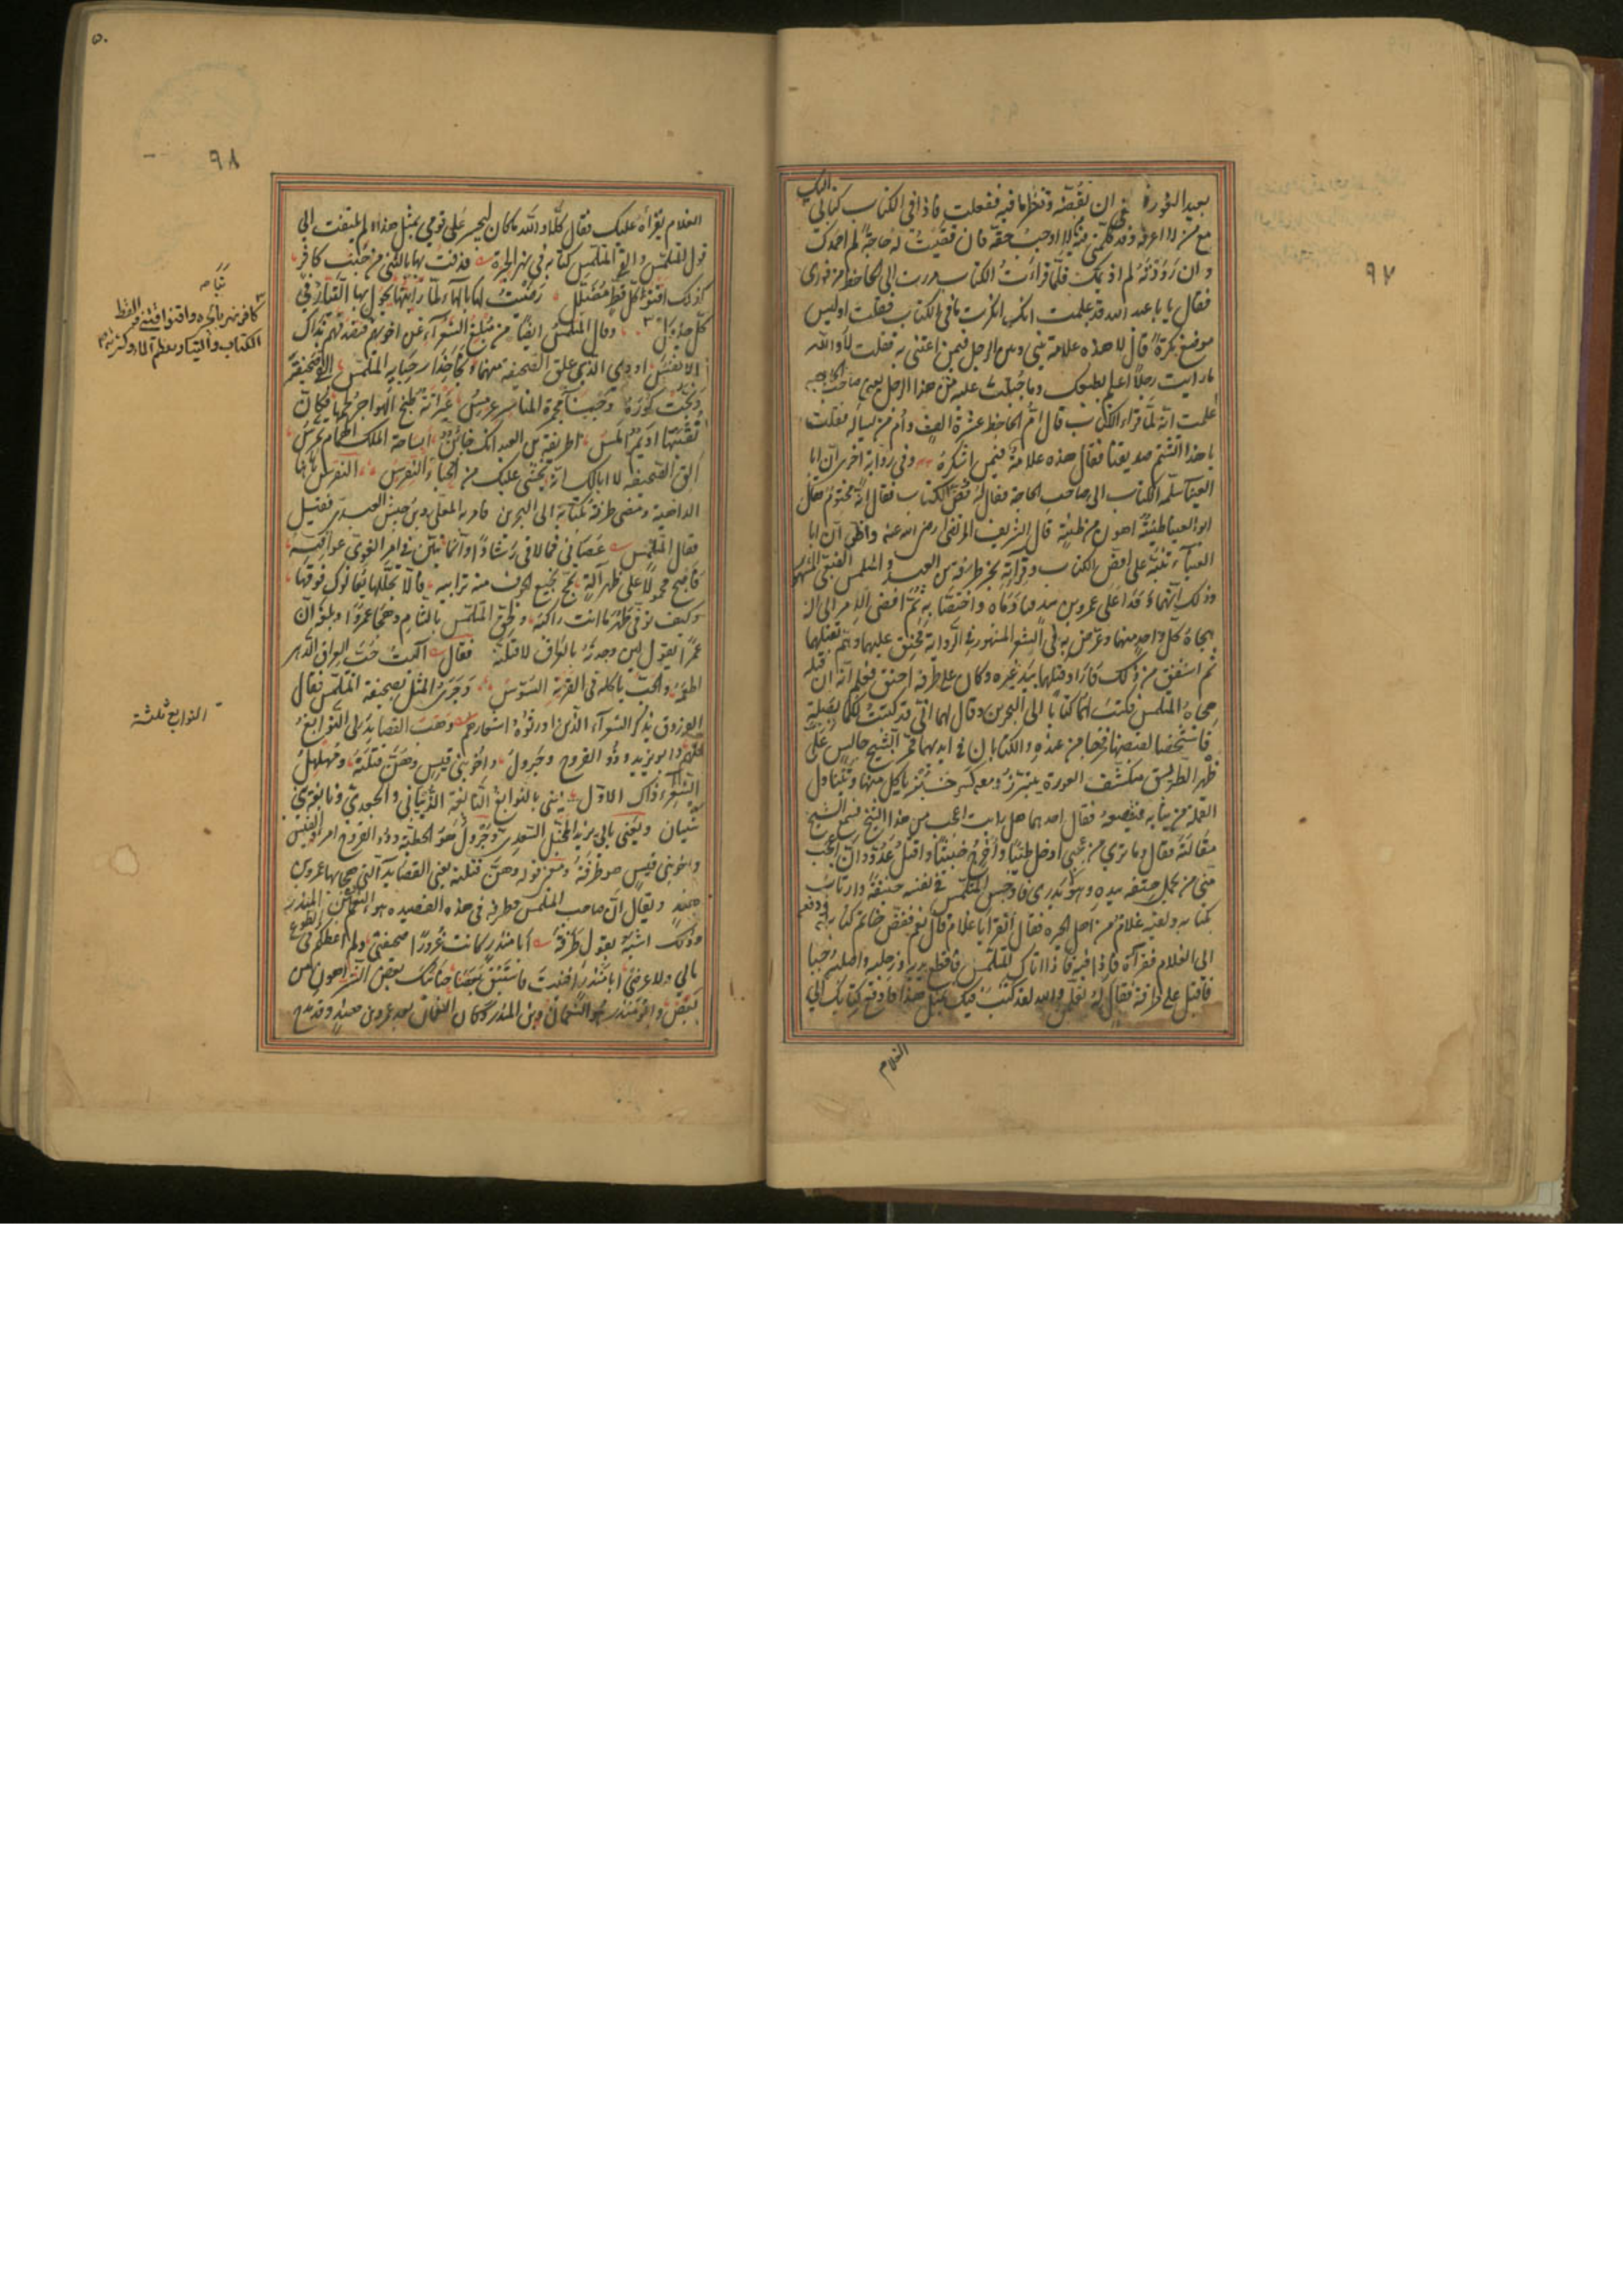 ٩٧
بعيد الغورة ان تفضه وتنظر ما فيه ففعلت فاذا في الكتاب كتابي اليك
مع من لا اعرفه وقد كلمني فيه من لا اوجب حقه فان قضيت له حاجة لم احمدك
وان رددته لم اذمك فلما قرأت الكتاب مررت الى الجاحظ من فوري
فقال يا با عبد الله قد علمت انك انكرت ما في الكتاب فقلت اوليس
موضع نكرة قال لا هذه علامة بيني وبين الرجل فيمن اعتني به فقلت لا والله
ما رايت رجلا اعلم بطبعك وما جبلت عليه من هذا الرجل
علمت انه لما قراء الكتاب قال ام الجاحظ عشرة الف وام من يساله فقلت
يا هذا اتشتم صديقنا فقال هذه علامة فيمن اشكره وفي رواية اخرى ان ابا
العينا سلم الكتاب الى صاحب الحاجة فقال له فض الكتاب فقال انه مختوم فقال
ابو العينا طينة اهون من ظنة قال الشريف المرتضى رضى الله عنه واظن ان ابا
العيناء تنبه على فض الكتاب وقراءته بخبر طرفة بن العبد والمتلمس
وذلك انهما وفدا على عمرو بن هند فنادماه واختصا به ثم افضى الامر الى ان
هجاه كل واحد منهما وعرض به في الشعر المشهور في الرواية فحنق عليهما وهم بقتلهما
ثم اشفق من ذلك فاراد قتلهما بيد غيره وكان على طرفة احنق فعلم انه ان قتله
هجاه المتلمس فكتب لهما كتابا الى البحرين وقال لهما اني قد كتبت لكما بصلة
فاشخصا لقبضها فخرجا من عنده والكتابان في ايديهما فمرا بشيخ جالس على
ظهر الطريق منكشف العورة يتبرز ومعه كسرة خبز ياكل منها ويتناول
القمل من ثيابه فيقصعه فقال احدهما هل رايت اعجب من هذا الشيخ فسمع الشيخ
مقالته فقال وما ترى من عجبي ادخل طيبا واخرج خبيثا واقتل عدوا وان اعجب
مني من يحمل حتفه بيده وهو لا يدري فاوجس المتلمس في نفسه خيفة وارتاب
بكتابه ولقيه غلام من اهل الحيرة فقال اتقرا يا غلام قال نعم ففض خاتم كتابه ودفعه
الى الغلام فقرأه فاذا فيه اذا اتاك المتلمس فاقطع يديه ورجليه واصلبه حيا
فاقبل على طرفة فقال له تعلم والله لقد كتب فيك بمثل هذا فادفع كتابك الى
الغلام
٩٨
الغلام يقرأه عليك فقال كلا والله ما كان ليجسر على قومي بمثل هذا ولم يلتفت الى
قول المتلمس والقى المتلمس كتابه في نهر الحيرة وقذفت بها بالثني من جنب كافر
كذلك اقنو كل قط مضلل رضيت لها بالماء لما رايتها يجول بها التيار في
كل جدول وقال المتلمس ايضا من مبلغ الشعراء عن اخويهم فتصدقهم بذاك
الانفس اودى الذي علق الصحيفة منهما ونجا حذار حبايه المتلمس القى صحيفته
ونجت كوره وجناء مجمرة المناسم عرمس عيرانة طبخ الهواجر لحمها فكان
نقبتها اديم املس اطريفة بن العبد انك حائن ابساحة الملك الهمام تمرس
الق الصحيفة لا ابا لك انه يخشى عليك من الحباء النقرس النقرس
الداهية ومضى طرفة بكتابه الى البحرين فامر به المعلى بن حنش العبدي فقتل
فقال المتلمس عصاني فما لاقى رشادا وانما تبين في امر الغوي عواقبه
فاصبح محمولا على ظهر آلة يمج نجيع الجوف منه ترائبه فالا تجللها يعالوك فوقها
وكيف توقى ظهر ما انت راكبه ولحق المتلمس بالشام وهجا عمرا وبلغه ان
عمرا يقول لئن وجدته بالعراق لاقتلنه فقال آليت حب العراق الدهر
اطعمه والحب ياكله في القرية السوس وجرى المثل بصحيفة المتلمس فقال
الفرزدق يذكر الشعراء الذين اورثوه اشعارهم وهب القصايد لي النوابغ
وابو يزيد وذو القروح وجرول واخو بني قيس وهن قتلنه ومهلهل
الشعراء ذاك الاول يعني بالنوابغ النابغة الذبياني والجعدي ونابغة بني
شيبان ويعني بابي يزيد المخبل السعدي وجرول هو الحطيئة وذو القروح امرؤ القيس
واخو بني قيس هو طرفة ومعنى قوله وهن قتلنه يعني القصايد التي هجا بها عمرو بن
هند ويقال ان صاحب المتلمس وطرفة في هذه القصيدة هو النعمان بن المنذر
وذلك اشبه بقول طرفة ابا منذر كانت غرورا صحيفتي ولم اعطكم في الطوع
مالي ولا عرضي ابا منذر افنيت فاستبق بعضنا حنانيك بعض الشر اهون من
بعض وابو منذر هو النعمان بن المنذر وكان النعمان بعد عمرو بن هند وقد مدح
كافر نهر بالحيرة واقنوا اقتني والقط
الكتاب والتيار معظم الماء وكثرته
النوابغ ثلثة